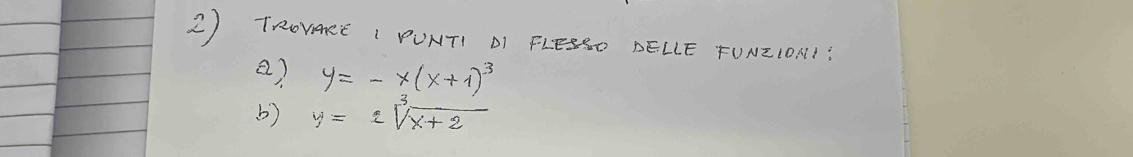 2) TROVARE I PUNTI DI FLESSO DELLE FUNZIONI:
a) y= - x(x+1)³
b) y= 2 ∛(x+2)